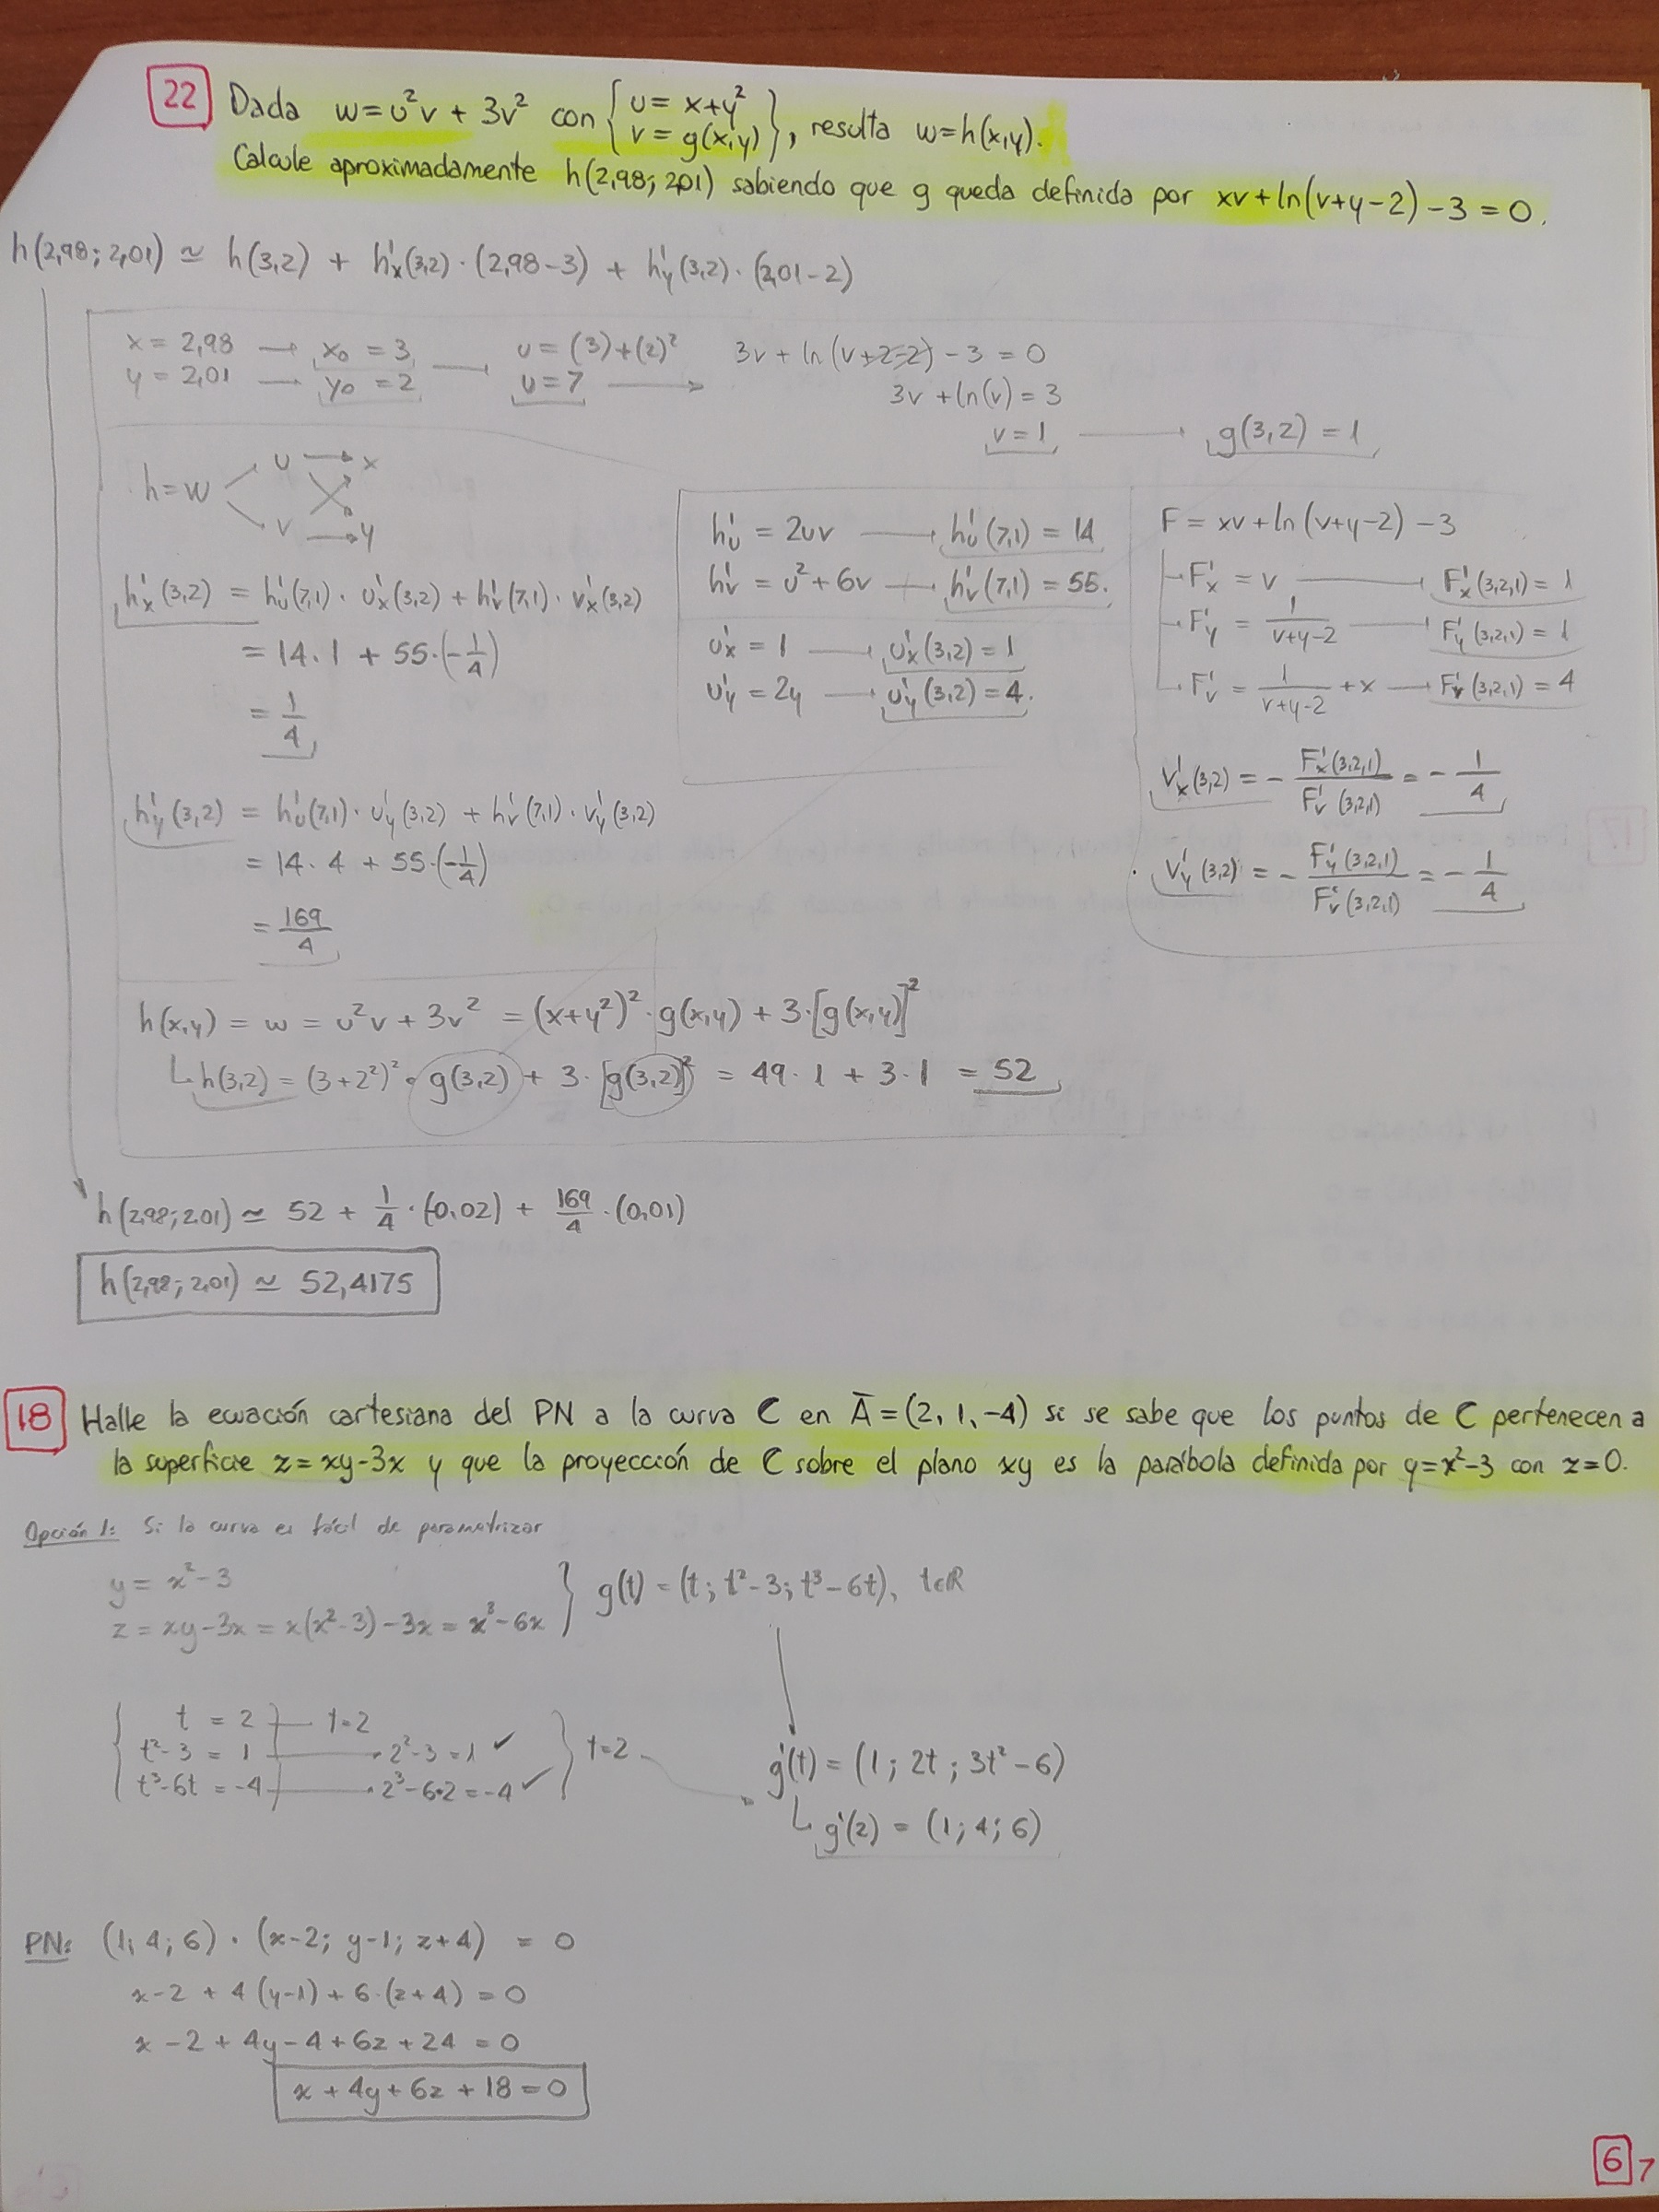 22 Dada w=u²v + 3v² con { u = x+y²
v = g(x,y) }, resulta w=h(x,y).
Calcule aproximadamente h(2,98; 2,01) sabiendo que g queda definida por xv+ln(v+y-2)-3=0.
h(2,98; 2,01) ≃ h(3,2) + h'x(3,2)·(2,98-3) + h'y(3,2)·(2,01-2)
x = 2,98 → x₀ = 3
y = 2,01 → y₀ = 2
u = (3)+(2)²
u = 7
3v + ln(v+2-2) - 3 = 0
3v + ln(v) = 3
v = 1 → g(3,2) = 1
h=w < u → x
v → y
h'x(3,2) = h'u(7,1)·u'x(3,2) + h'v(7,1)·v'x(3,2)
= 14·1 + 55·(-1/4)
= 1/4
h'y(3,2) = h'u(7,1)·u'y(3,2) + h'v(7,1)·v'y(3,2)
= 14·4 + 55·(-1/4)
= 169/4
h'u = 2uv → h'u(7,1) = 14
h'v = u²+6v → h'v(7,1) = 55.
u'x = 1 → u'x(3,2) = 1
u'y = 2y → u'y(3,2) = 4.
F = xv+ln(v+y-2)-3
F'x = v → F'x(3,2,1) = 1
F'y = 1/(v+y-2) → F'y(3,2,1) = 1
F'v = 1/(v+y-2) + x → F'v(3,2,1) = 4
v'x(3,2) = - F'x(3,2,1)/F'v(3,2,1) = - 1/4
v'y(3,2) = - F'y(3,2,1)/F'v(3,2,1) = - 1/4
h(x,y) = w = u²v + 3v² = (x+y²)²·g(x,y) + 3·[g(x,y)]²
h(3,2) = (3+2²)²·g(3,2) + 3·[g(3,2)]² = 49·1 + 3·1 = 52
h(2,98; 2,01) ≃ 52 + 1/4·(-0,02) + 169/4·(0,01)
h(2,98; 2,01) ≃ 52,4175
18 Halle la ecuación cartesiana del PN a la curva C en Ā=(2, 1, -4) si se sabe que los puntos de C pertenecen a
la superficie z=xy-3x y que la proyección de C sobre el plano xy es la parábola definida por y=x²-3 con z=0.
Opción 1: Si la curva es fácil de parametrizar
y = x²-3
z = xy-3x = x(x²-3)-3x = x³-6x
} g(t) = (t; t²-3; t³-6t), t∈ℝ
{ t = 2 → t=2
t²-3 = 1 → 2²-3=1 ✓
t³-6t = -4 → 2³-6·2=-4 ✓
} t=2
g'(t) = (1; 2t; 3t²-6)
g'(2) = (1; 4; 6)
PN: (1; 4; 6) · (x-2; y-1; z+4) = 0
x-2 + 4(y-1) + 6·(z+4) = 0
x-2+4y-4+6z+24 = 0
x+4y+6z+18=0
6 7